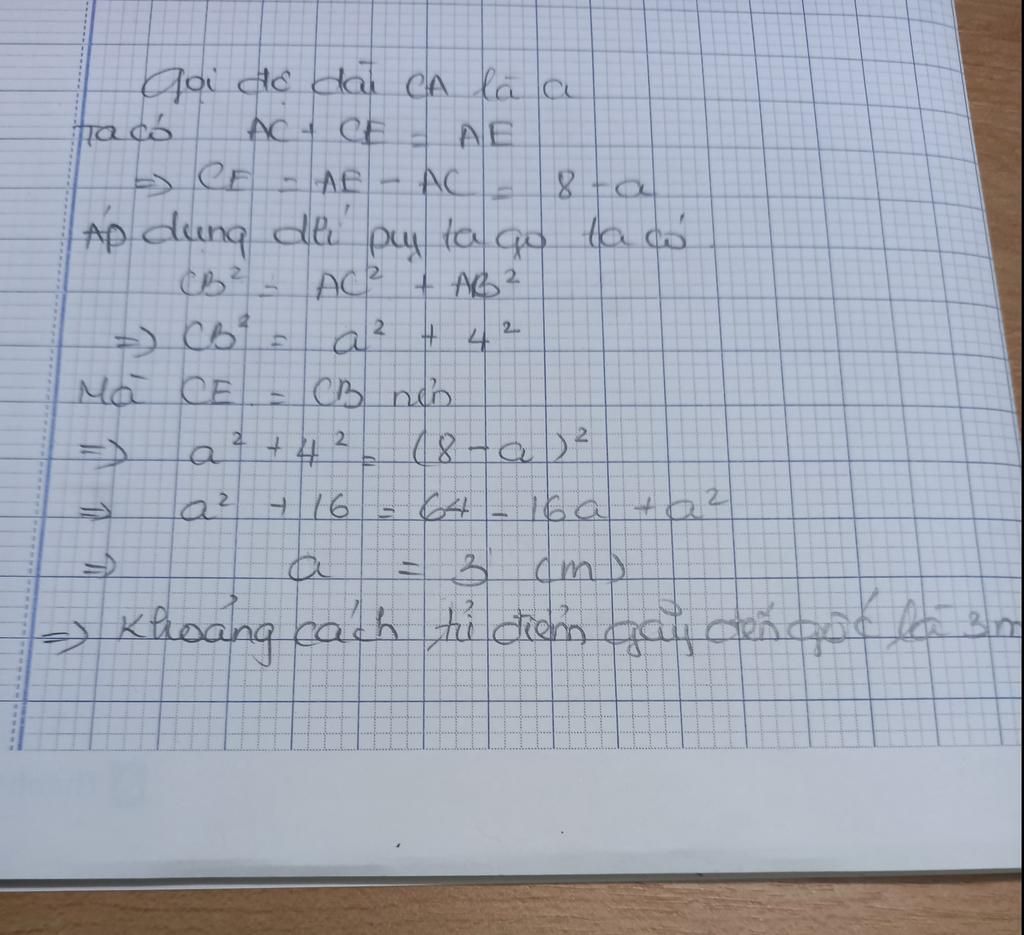 Gọi độ dài CA là a
Ta có AC + CE = AE
=> CE = AE - AC = 8 - a
Áp dụng dlí py ta go ta có
CB² = AC² + AB²
=> CB² = a² + 4²
Mà CE = CB nên
=> a² + 4² = (8 - a)²
=> a² + 16 = 64 - 16a + a²
=> a = 3 (m)
=> Khoảng cách từ điểm gãy đến gốc là 3m